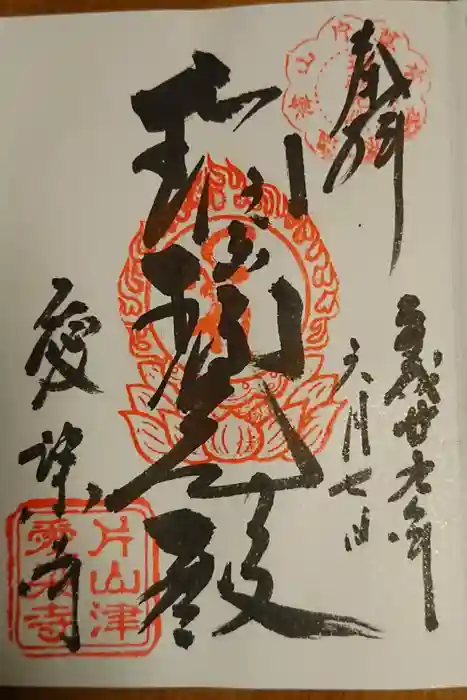 奉拝
平成廿九年
六月七日
瑠璃光殿
愛染寺
片山津
愛染寺